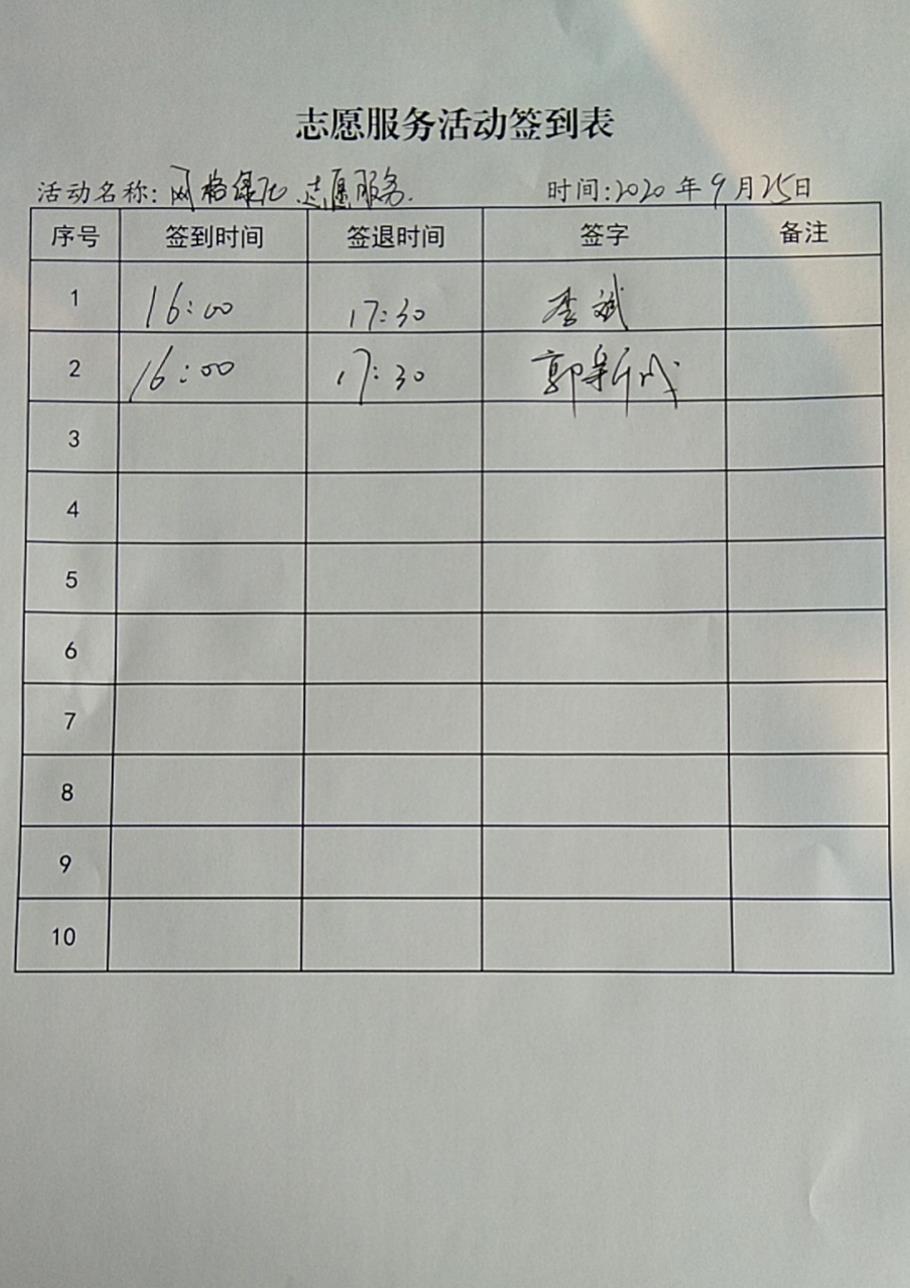 志愿服务活动签到表
活动名称: 网格绿化志愿服务. 时间:2020年9月25日
序号 签到时间 签退时间 签字 备注
1 16:00 17:30 李斌
2 16:00 17:30 郭新成
3
4
5
6
7
8
9
10